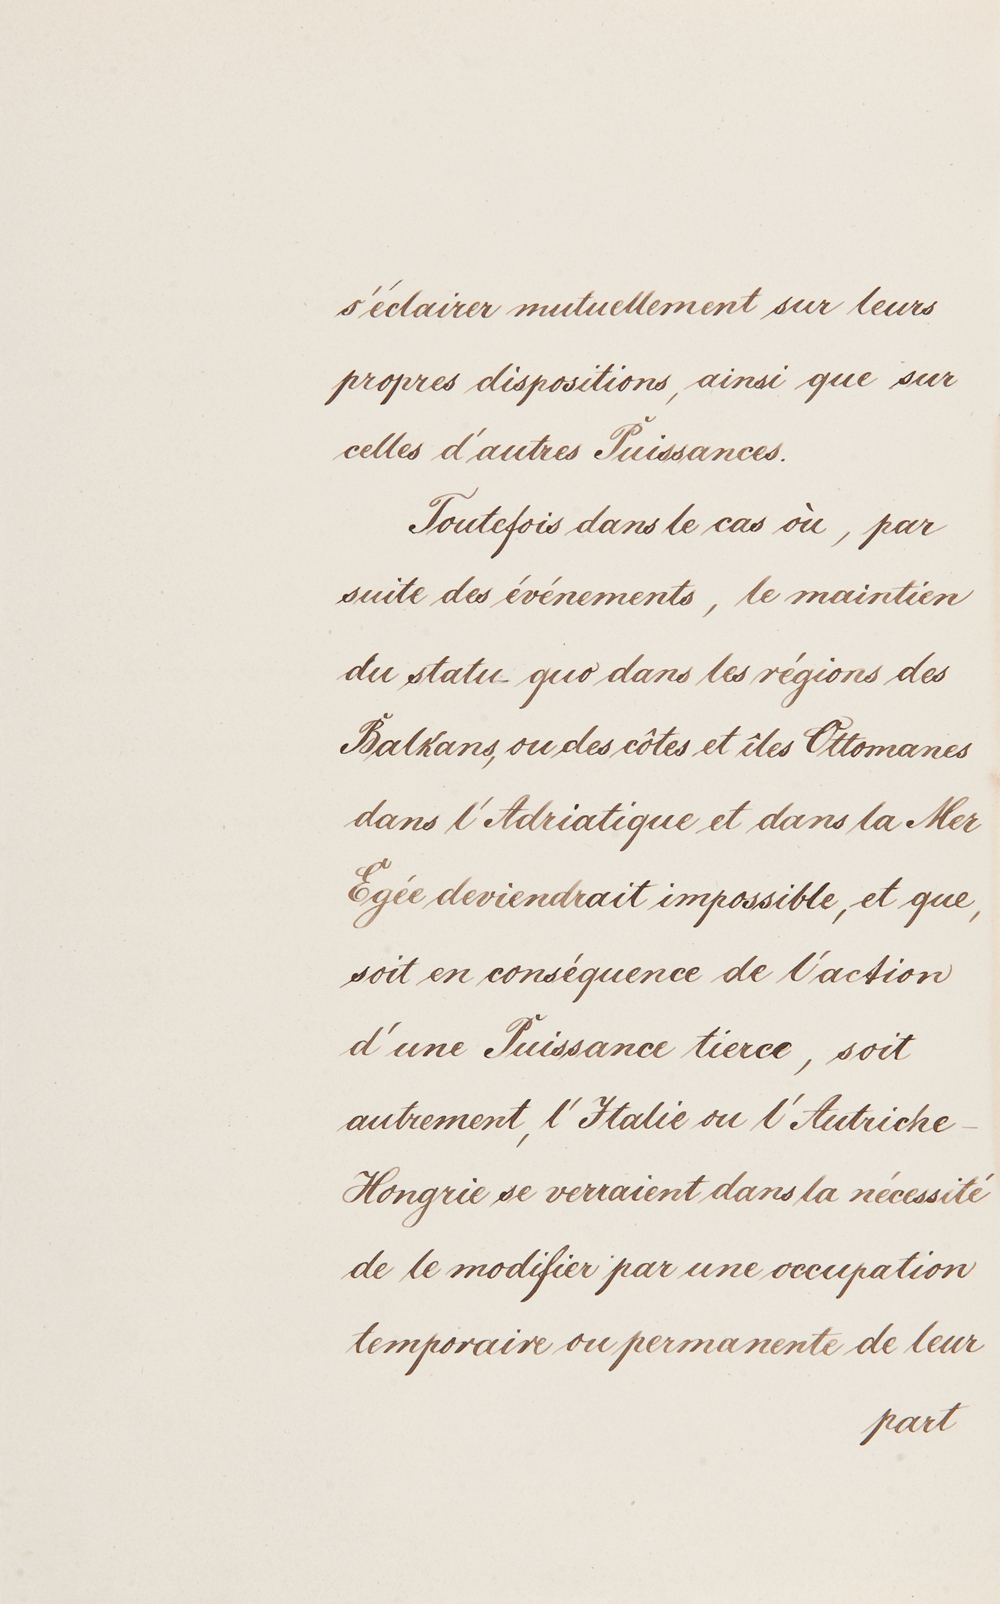 s'éclairer mutuellement sur leurs
propres dispositions, ainsi que sur
celles d'autres Puissances.
Toutefois dans le cas òu, par
suite des événements, le maintien
du statu-quo dans les régions des
Balkans, ou des côtes et îles Ottomanes
dans l'Adriatique et dans la Mer
Egée deviendrait impossible, et que,
soit en conséquence de l'action
d'une Puissance tierce, soit
autrement, l'Italie ou l'Autriche-
Hongrie se verraient dans la nécessité
de le modifier par une occupation
temporaire ou permanente de leur
part